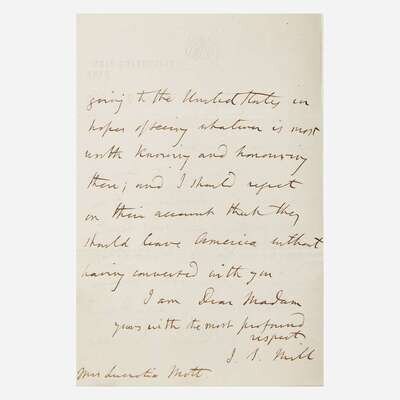 going to the United States in
hopes of seeing whatever is most
worth knowing and honouring
there; and I should regret
on their account that they
should leave America without
having conversed with you
I am Dear Madam
yours with the most profound
respect
J. S. Mill
Mrs Lucretia Mott